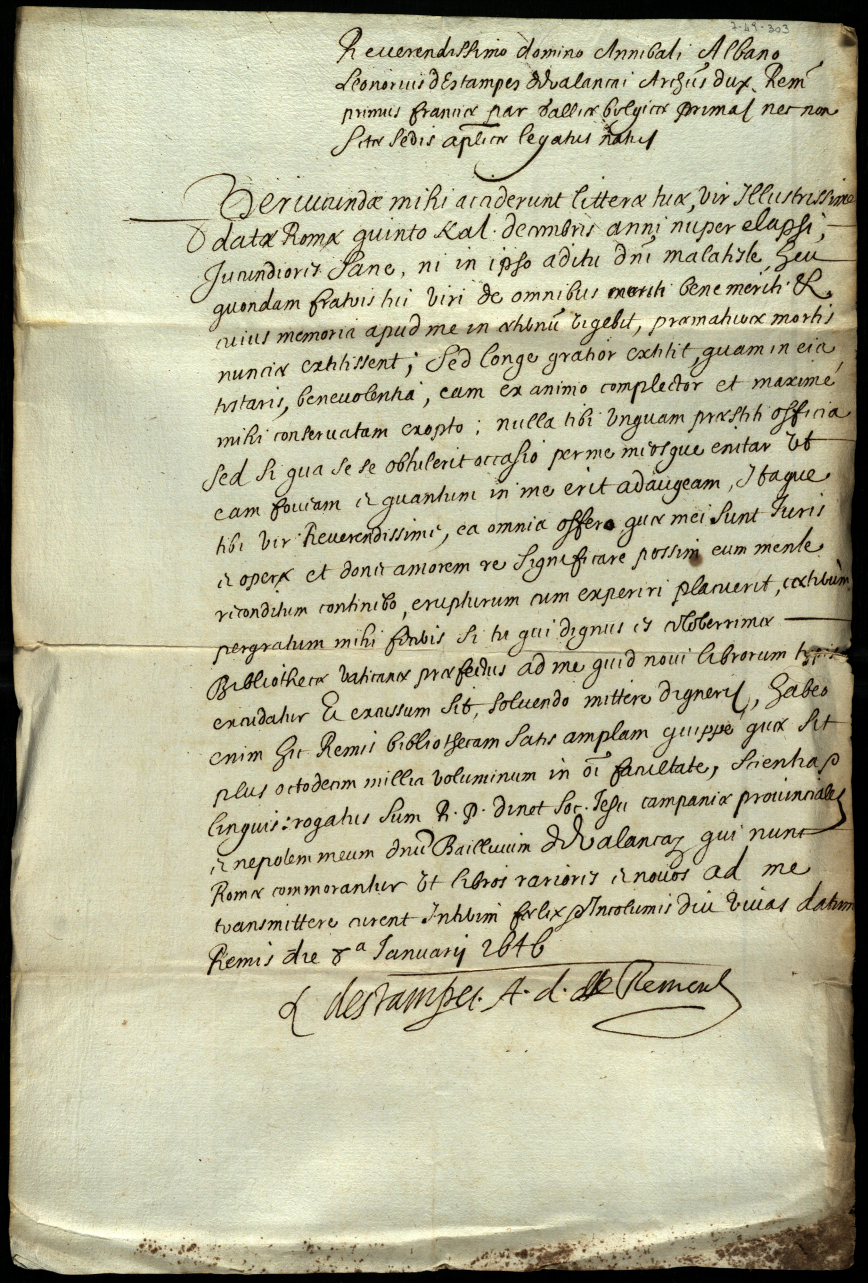 7-49-303
Reverendissimo domino Annibali Albano
Leonorius dEstampes de Valancai Archūs dux Remē
primus franciæ par Galliæ belgicæ primas nec non
Sctæ Sedis aplicæ legatus natus
Periucundæ mihi acciderunt litteræ tuæ, vir Illustrissime
datæ Romæ quinto Kal. decembris anni nuper elapsi,
Jucundiores sane, ni in ipso aditu dni malatistæ, heu
quondam fratris tui viri de omnibus bene meriti &
cuius memoria apud me in æternū vigebit, præmaturæ mortis
nunciæ extitissent; sed longe gratior extitit, quam in ea
testaris, benevolentia, eam ex animo complector et maxime
mihi conservatam exopto; nulla tibi unquam præstiti officia
sed si qua se se obtulerit occasio per me meosque enitar ut
eam foveam & quantum in me erit adaugeam, Itaque
tibi vir Reverendissime, ea omnia offero quæ mei sunt Juris
& operæ et donec amorem re significare possim eum mente
reconditum continebo, erupturum cum experiri placuerit,
pergratum mihi feceris si tu qui dignus es celeberrimæ
Bibliothecæ vaticanæ præfectus ad me quid novi librorum typis
excudatur & excussum sit, solvendo mittere digneris, habeo
enim hic Remis bibliothecam satis amplam quippe quæ sit
plus octodecim millia voluminum in oi facultate, scientia &
linguis: rogatus sum R. P. dinet Soc. Iesu campaniæ provincialem
& nepotem meum dnū Baillivum de Valancay qui nunc
Romæ commorantur ut libros rariores & novos ad me
transmittere curent Interim felix & Incolumis diu vivas datum
Remis die 8a Ianuarij 1646
L destampes. A. d. de Remens